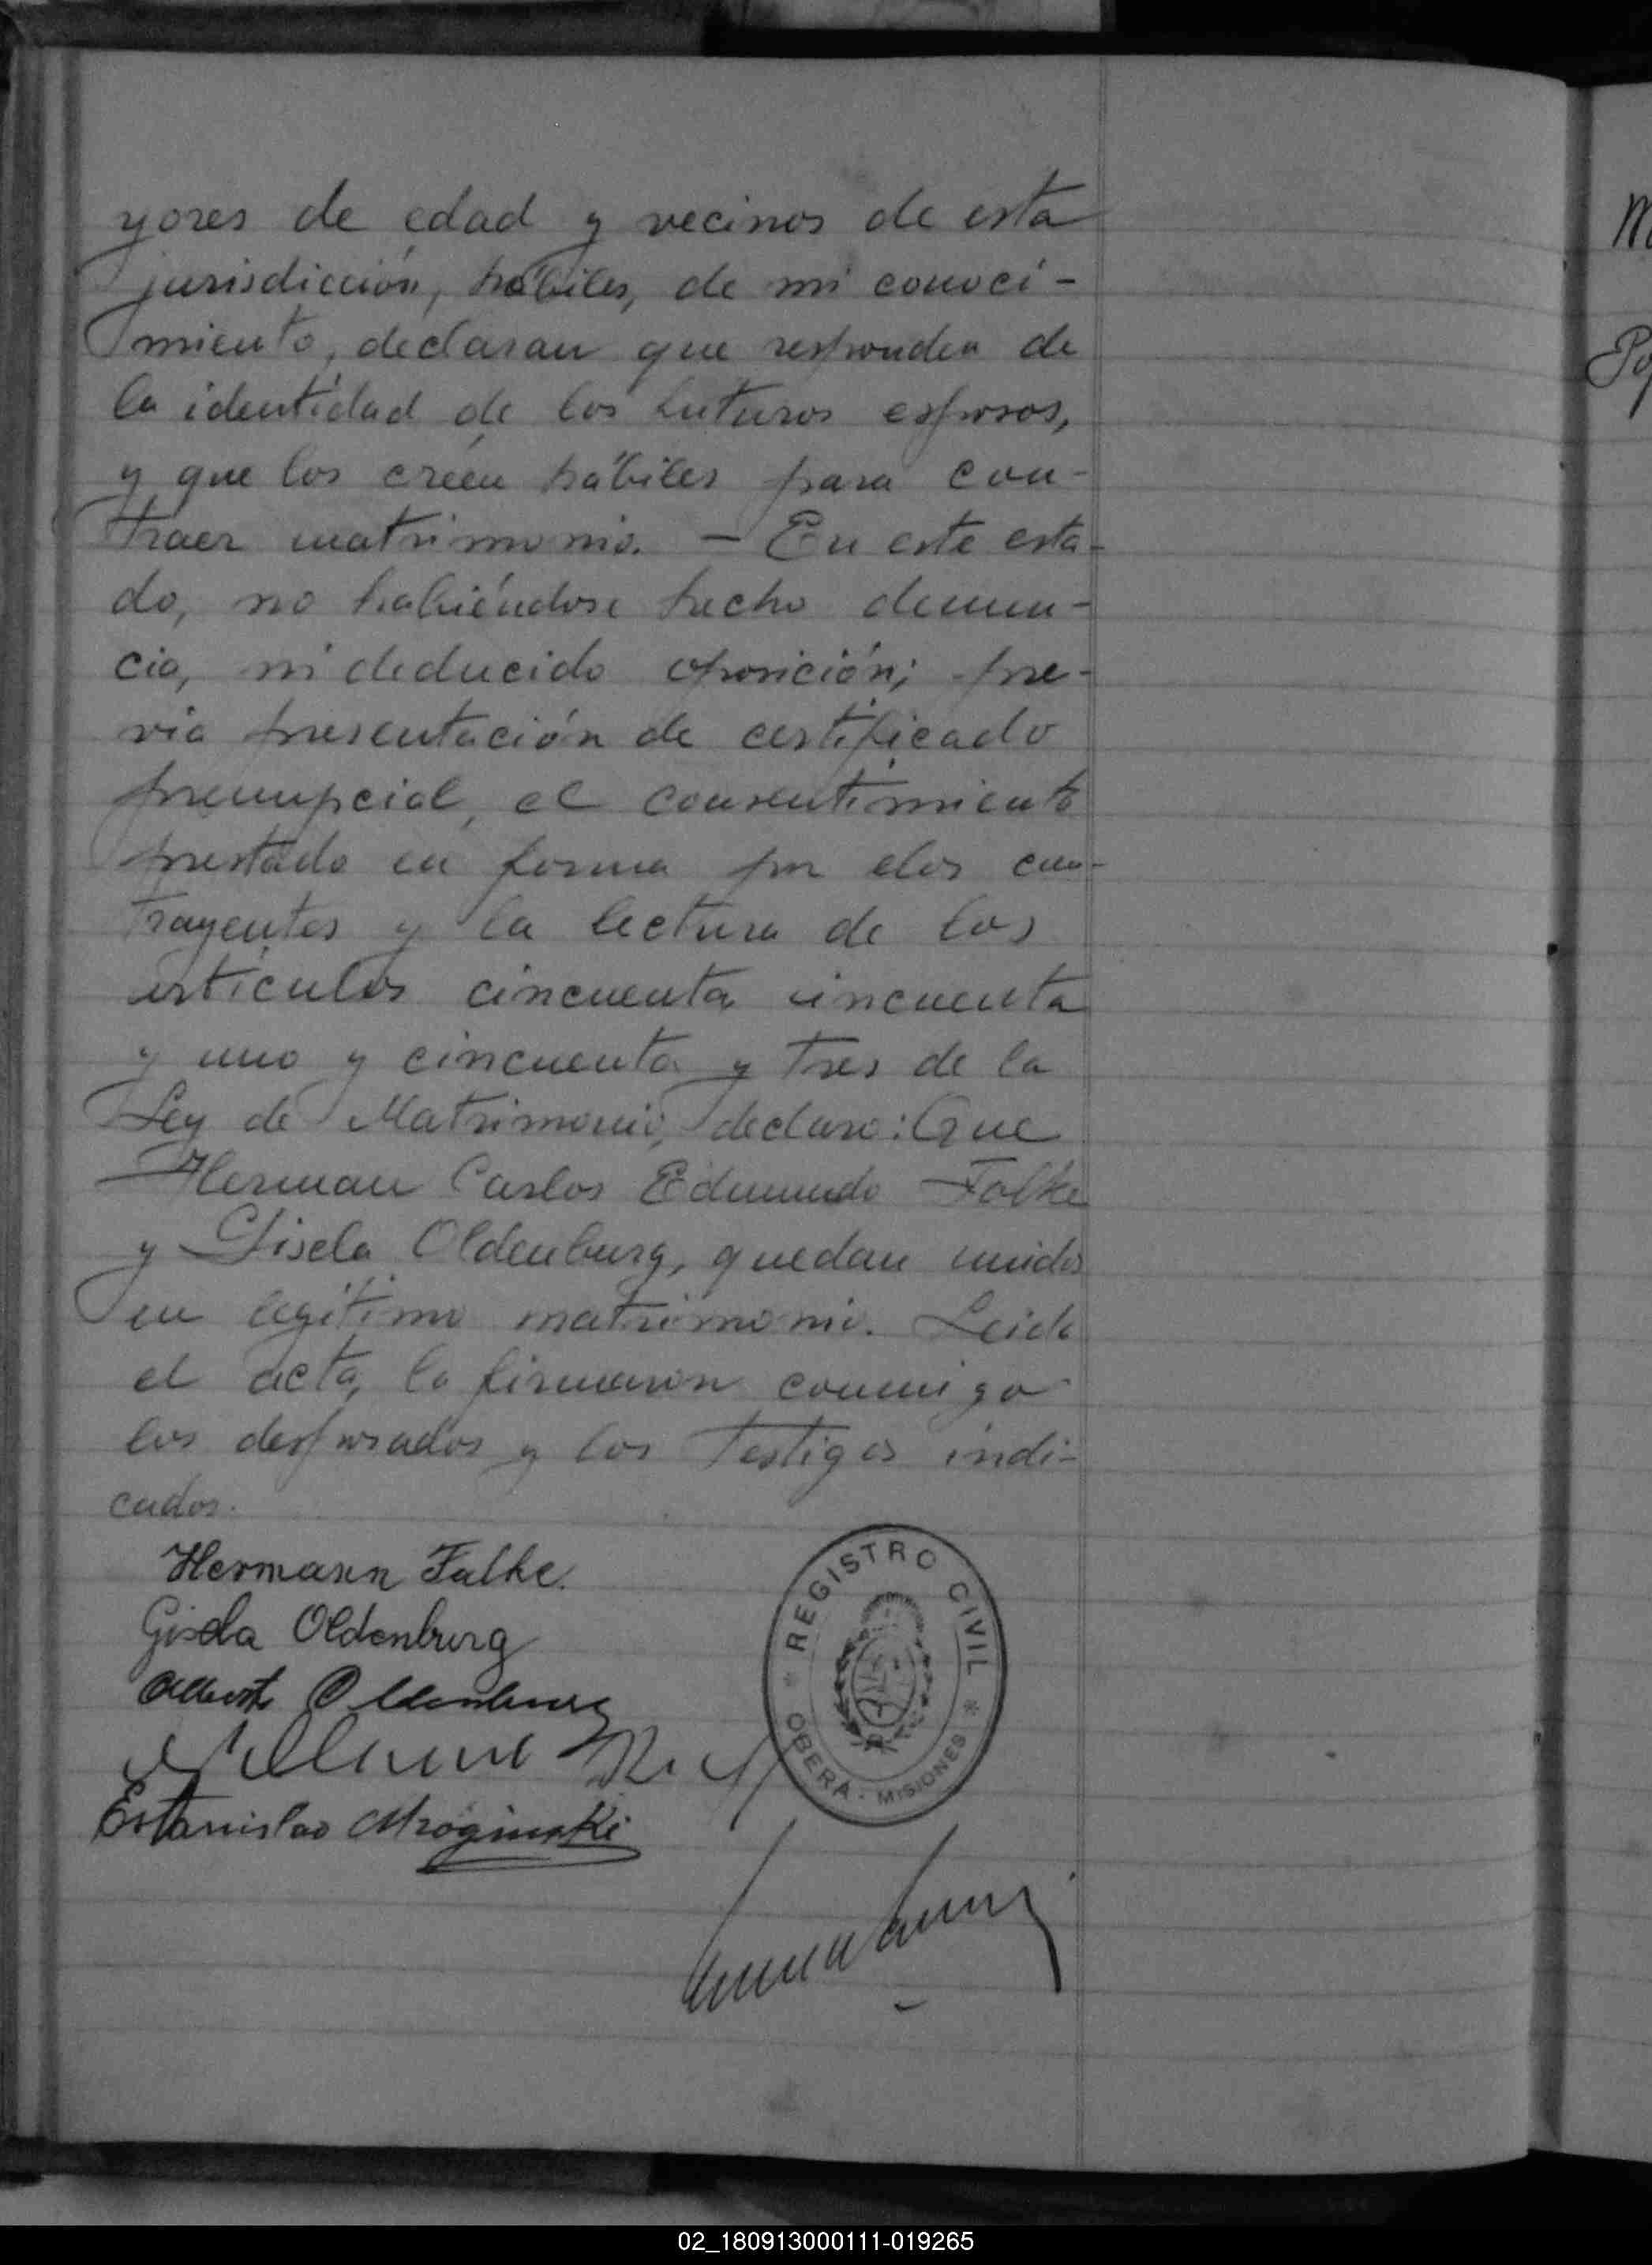 yores de edad y vecinos de esta
jurisdicción, hábiles, de mi conoci-
miento, declaran que responden de
la identidad de los futuros esposos,
y que los créen hábiles para con-
traer matrimonio. — En este esta-
do, no habiéndose hecho denun-
cia, ni deducido oposición; pre-
via presentación de certificado
prenupcial, el consentimiento
prestado en forma por elos con-
trayentes y la lectura de los
artículos cincuenta cincuenta
y uno y cincuenta y tres de la
Ley de Matrimonio, declaro: Que
Herman Carlos Edmundo Falke
y Gisela Oldenburg, quedan unidos
en legítimo matrimonio. Leida
el acta, la firmaron conmigo
los desposados y los testigos indi-
cados.
Hermann Falke.
Gisela Oldenburg
Alberto Oldenburg
Estanislao Mroginski
REGISTRO CIVIL
* OBERA - MISIONES *
M
Po
02_180913000111-019265